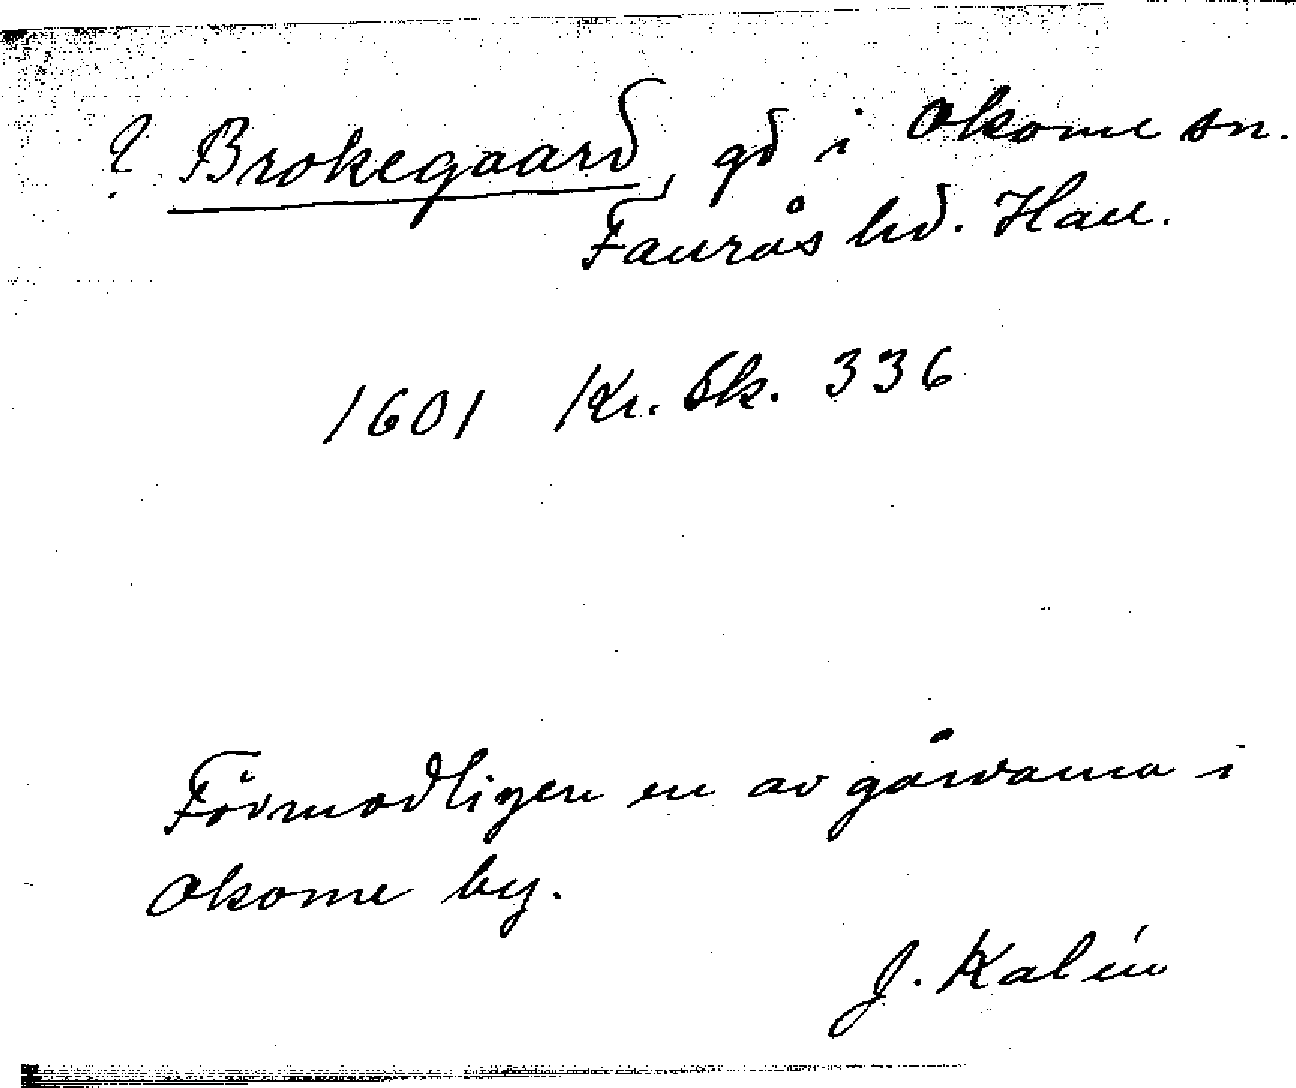 ? Brokegaard, gd i Okome sn.
Faurås hd. Hall.
1601 Kr. Sk. 336
Förmodligen en av gårdarna i
Okome by.
J. Kalén